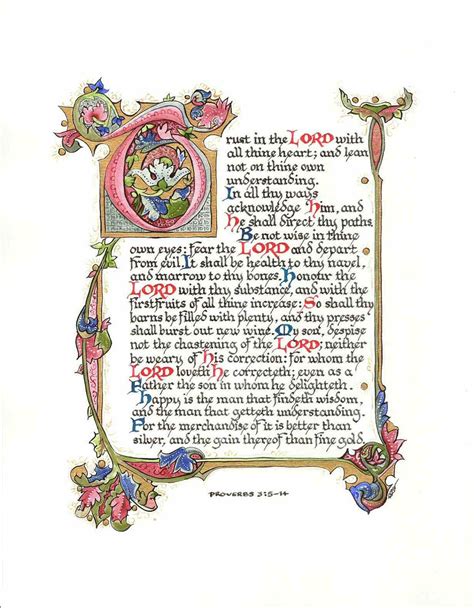 Trust in the LORD with
all thine heart; and lean
not on thine own
understanding.
In all thy ways
acknowledge Him, and
He shall direct thy paths.
Be not wise in thine
own eyes: fear the LORD and depart
from evil. It shall be health to thy navel,
and marrow to thy bones. Honour the
LORD with thy substance, and with the
firstfruits of all thine increase: So shall thy
barns be filled with plenty, and thy presses
shall burst out new wine. My son, despise
not the chastening of the LORD; neither
be weary of His correction: for whom the
LORD loveth He correcteth; even as a
Father the son in whom he delighteth.
Happy is the man that findeth wisdom,
and the man that getteth understanding.
For the merchandise of it is better than
silver, and the gain thereof than fine gold.
PROVERBS 3:5-14